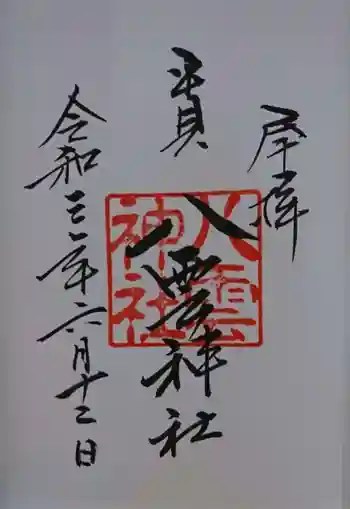 奉拝
八雲神社
八雲神社
令和三年六月十二日